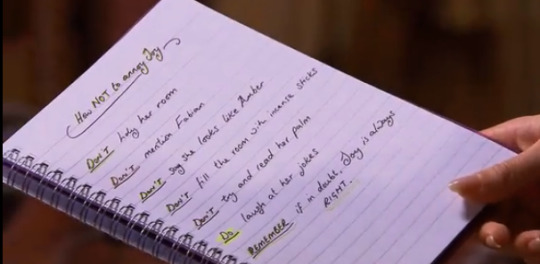 How NOT to annoy Joy
DON'T tidy her room
DON'T mention Fabian
DON'T say she looks like Amber
DON'T fill the room with incense sticks
DON'T try and read her palm
Do laugh at her jokes
REMEMBER if in doubt, Joy is always
RIGHT.